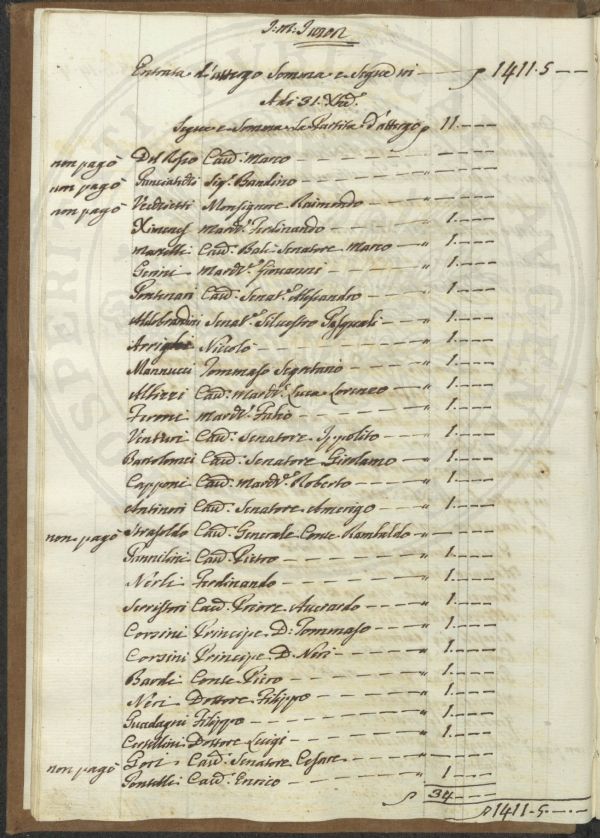 Entrata d'attergo Somma e Segue in — 1411.5 — —
A di 31. Xbre
Segue e Somma La Partita d'attergo 11. — — —
non pagò Del Rosso Cav. Marco — — — —
non pagò Panciatichi Sig. Bandino — — — —
non pagò Monsignore Raimondo — — — —
Ximenes March. Ferdinando — " 1. — — —
Martelli Cav. Balì Senatore Marco — " 1. — — —
Gerini March. Giovanni — " 1. — — —
Cav. Senat. Alessandro — " 1. — — —
Aldobrandini Senat. Silvestro Pasquali — " 1. — — —
Arrighi Niccolò — " 1. — — —
Mannucci Tommaso Segretario — " 1. — — —
Albizzi Cav. March. Luca Lorenzo — " 1. — — —
Feroni March. Fabio — " 1. — — —
Venturi Cav. Senatore Ippolito — " 1. — — —
Bartolomei Cav. Senatore Girolamo — " 1. — — —
Capponi Cav. March. Roberto — " 1. — — —
Antinori Cav. Senatore Amerigo — " 1. — — —
non pagò Strasoldo Cav. Generale Conte Rambaldo — " — — —
Cav. Pietro — " 1. — — —
Nerli Ferdinando — " 1. — — —
Serristori Cav. Priore Averardo — " 1. — — —
Corsini Principe D. Tommaso — " 1. — — —
Corsini Principe D. Neri — " 1. — — —
Bardi Conte Piero — " 1. — — —
Neri Dottore Filippo — " 1. — — —
Guadagni Filippo — " 1. — — —
Dottore Luigi — " 1. — — —
non pagò Gori Cav. Senatore Cesare — — — —
Cav. Enrico — " 1. — — —
34 — — —
1411.5. — — —